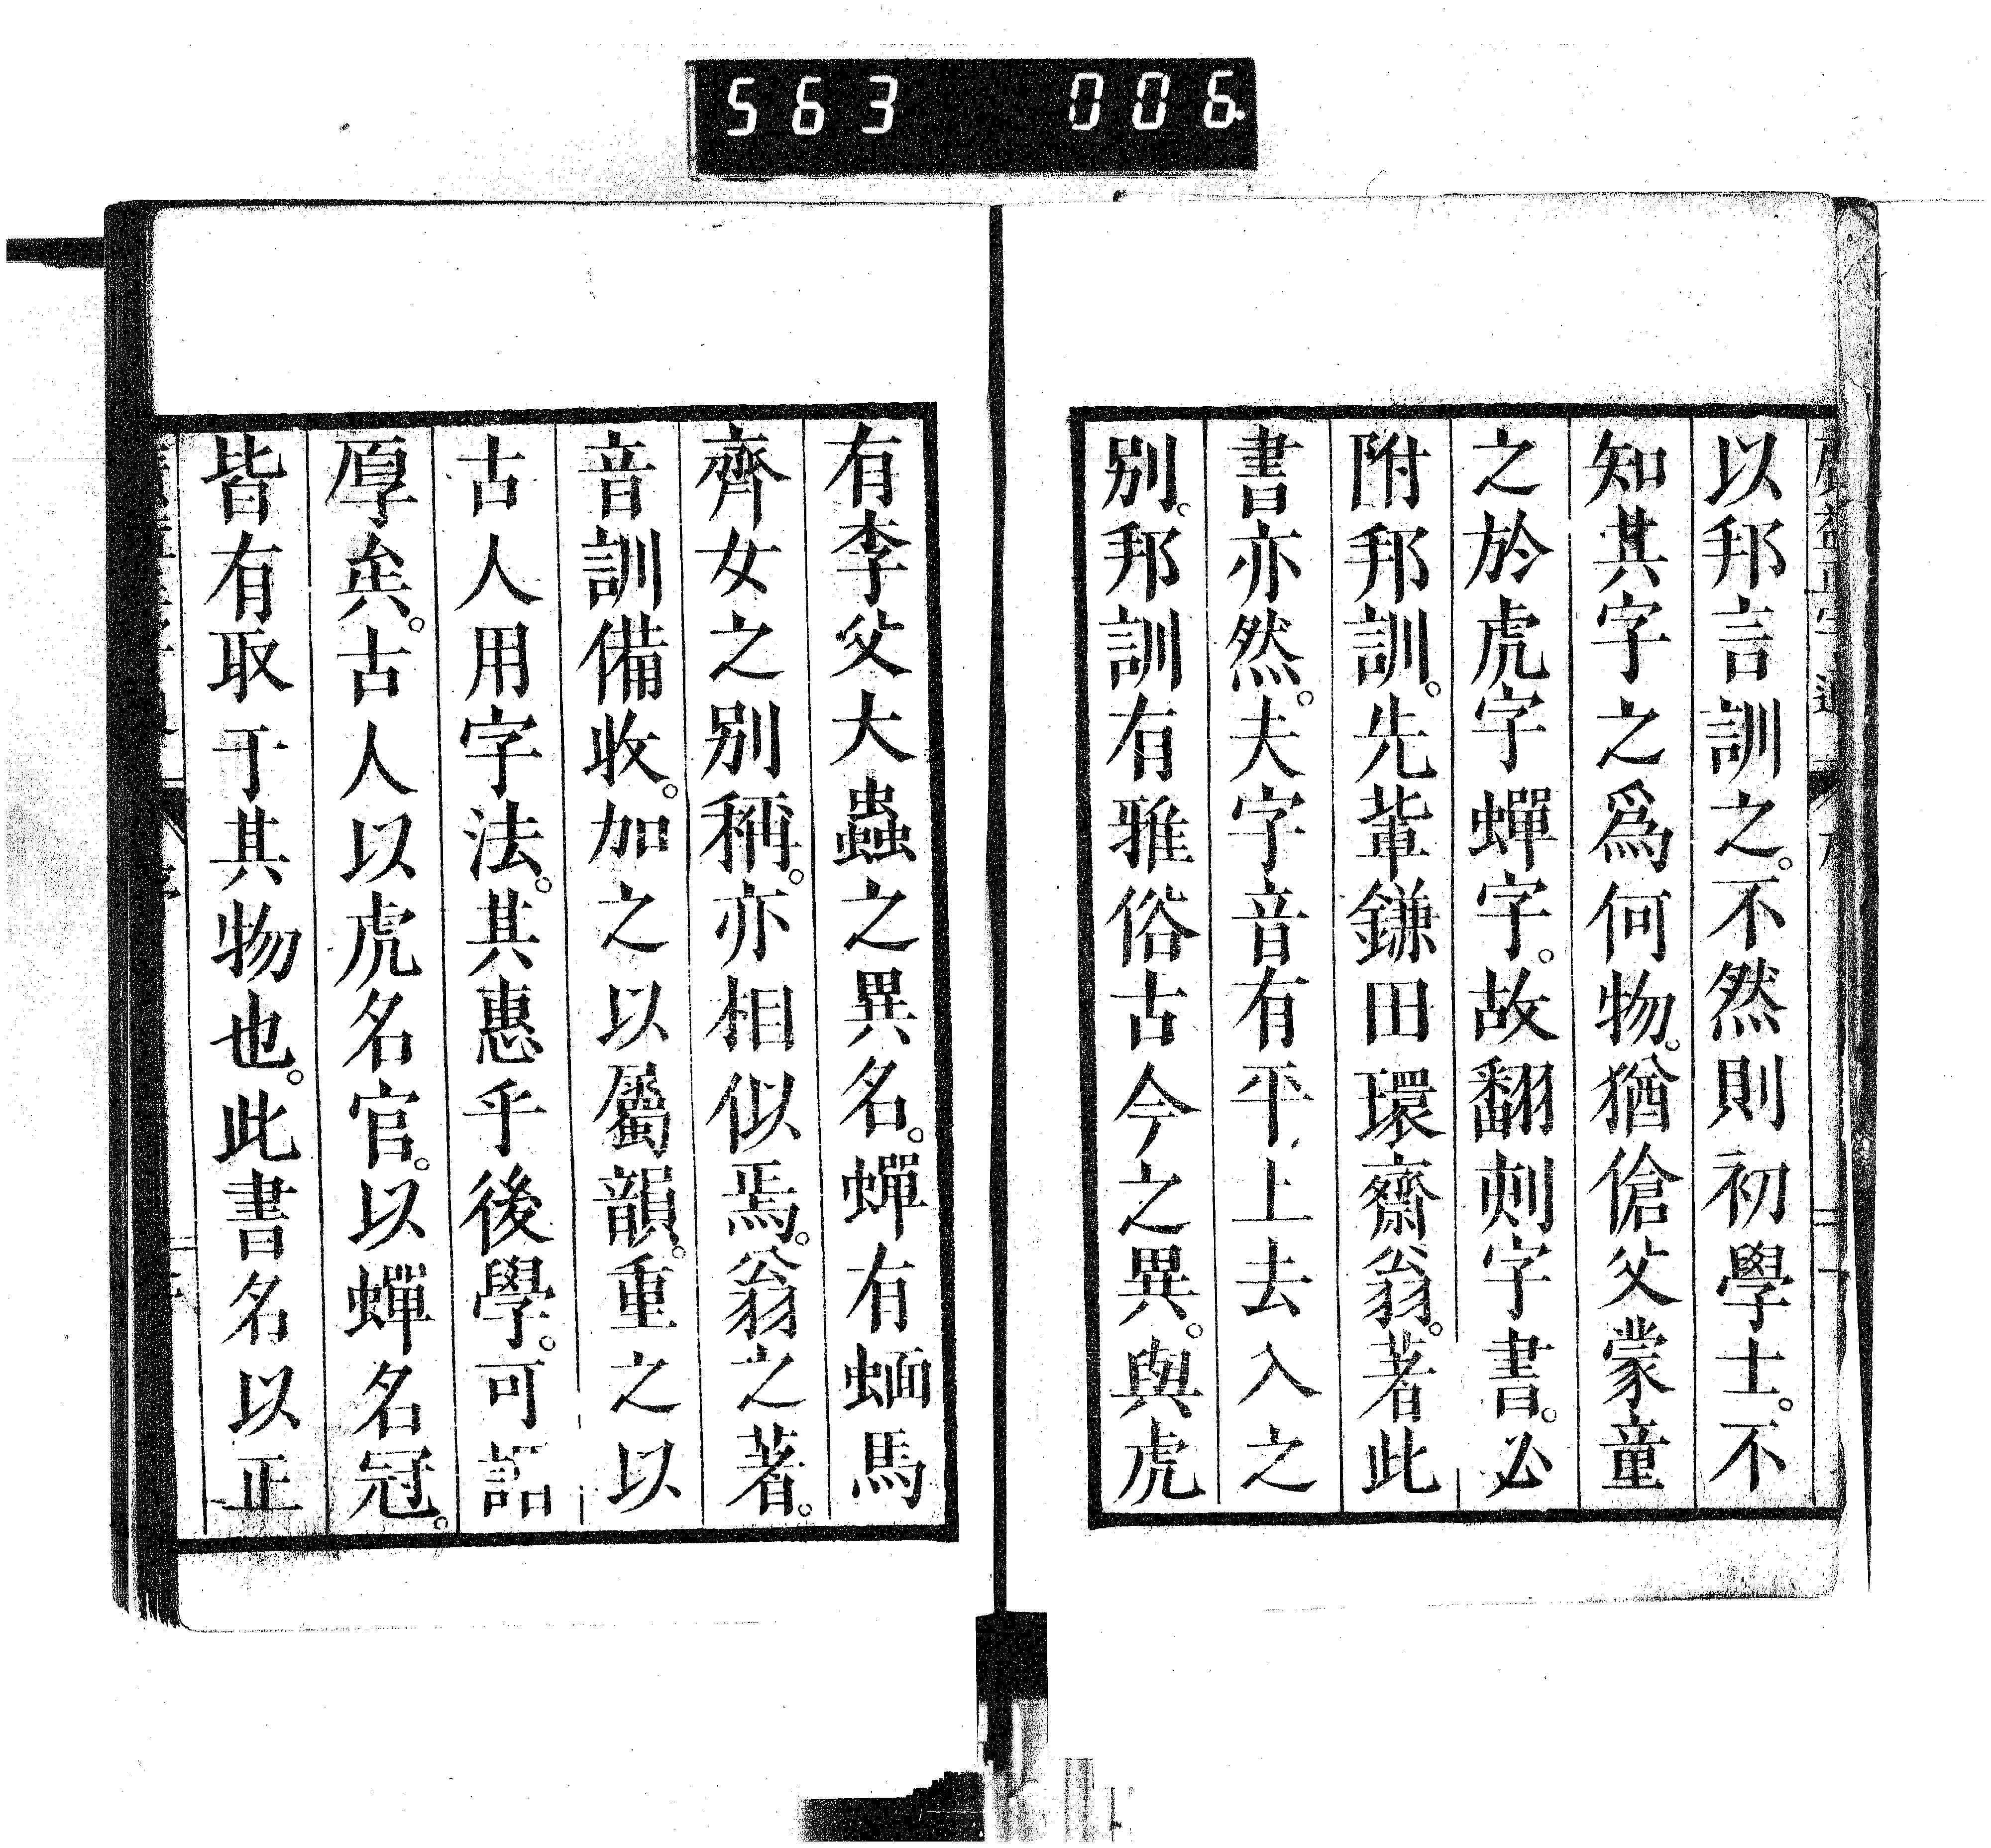 563 006
以邦言訓之。不然則初學士。不
知其字之爲何物。猶傖父蒙童
之於虎字蟬字。故翻刻字書。必
附邦訓。先輩鎌田環齋翁。著此
書亦然。夫字音有平上去入之
別。邦訓有雅俗古今之異。與虎
有李父大蟲之異名。蟬有蝒馬
齊女之別稱。亦相似焉。翁之著。
音訓備收。加之以屬韻。重之以
古人用字法。其惠乎後學。可謂
厚矣。古人以虎名官。以蟬名冠。
皆有取于其物也。此書名以正